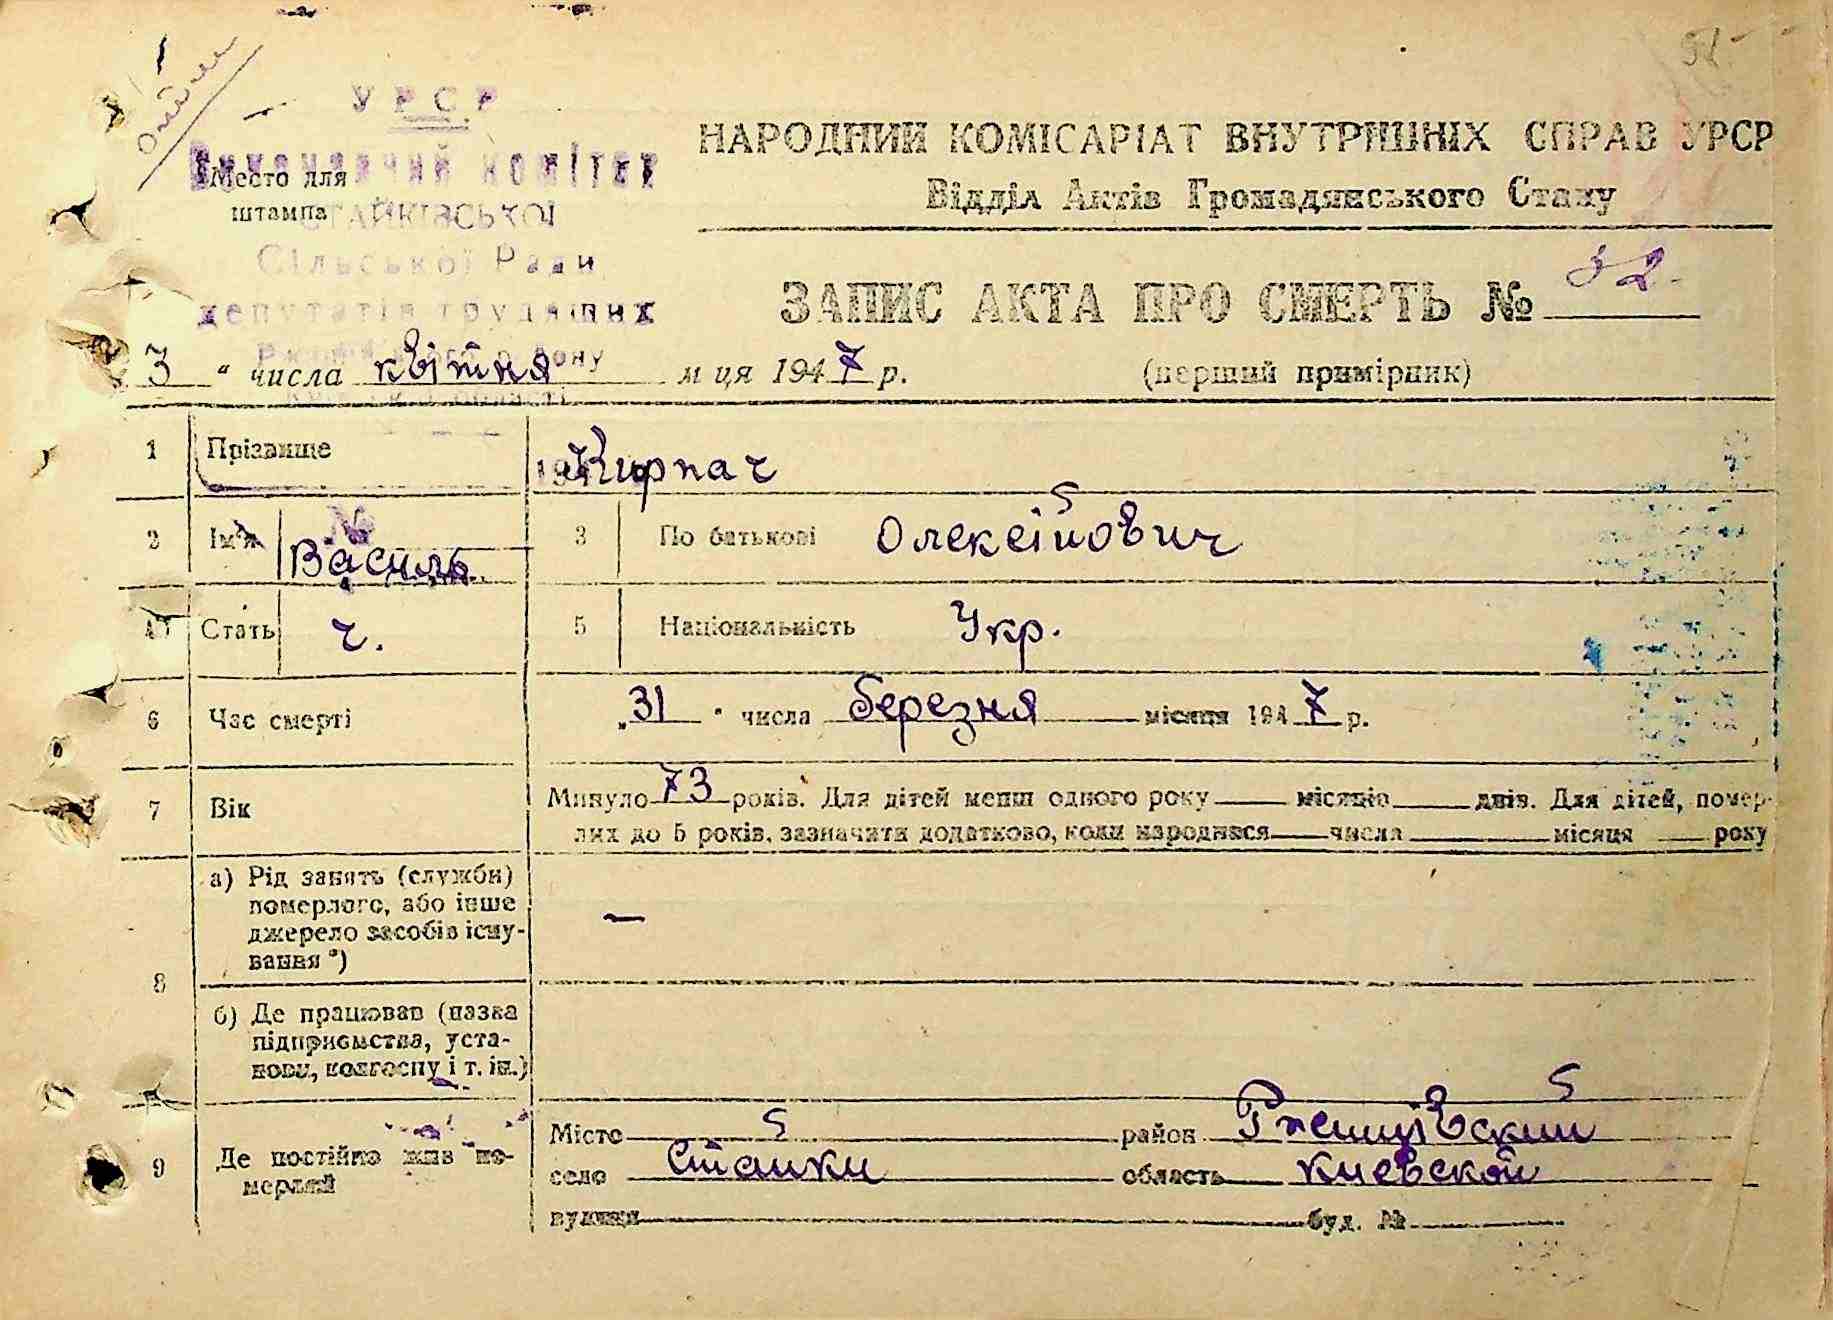 51
опізн
УРСР
Виконавчий комітет
Место для
штампа
СТАЙКІВСЬКОЇ
Сільської Ради
депутатів трудящих
НАРОДНИЙ КОМІСАРІАТ ВНУТРІШНІХ СПРАВ УРСР
Відділ Актів Громадянського Стану
ЗАПИС АКТА ПРО СМЕРТЬ № 32
3 " числа квітня м ця 1947 р. (перший примірник)
1 Прізвище Кирпач
2 Ім'я Василь 3 По батькові Олексійович
4 Стать ч. 5 Національність Укр.
6 Час смерті „31 " числа березня місяця 1947 р.
7 Вік Минуло 73 років. Для дітей менш одного року місяців днів. Для дітей, помер-
лих до 5 років, зазначити додатково, коли народився числа місяця року
8 а) Рід занять (служби)
померлого, або інше
джерело засобів існу-
вання *) —
б) Де працював (назва
підприємства, уста-
нови, колгоспу і т. ін.)
9 Де постійно жив по-
мерлий
Місто район Ржищівский
село Стайки область Киевской
вулиця буд. №